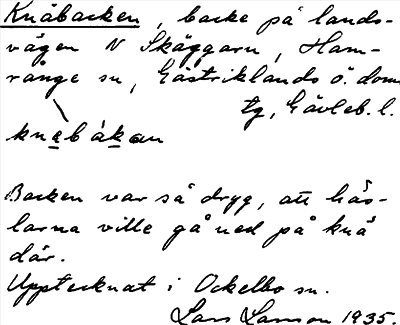 Knäbacken, backe på lands-
vägen N Skäggarn, Ham-
rånge sn, Gästriklands ö. dom
tg, Gävleb. l.
knäbákan
Backen var så dryg, att häs-
larna ville gå ned på knä
där.
Upptecknat i Ockelbo sn.
Lars Larsson 1935.